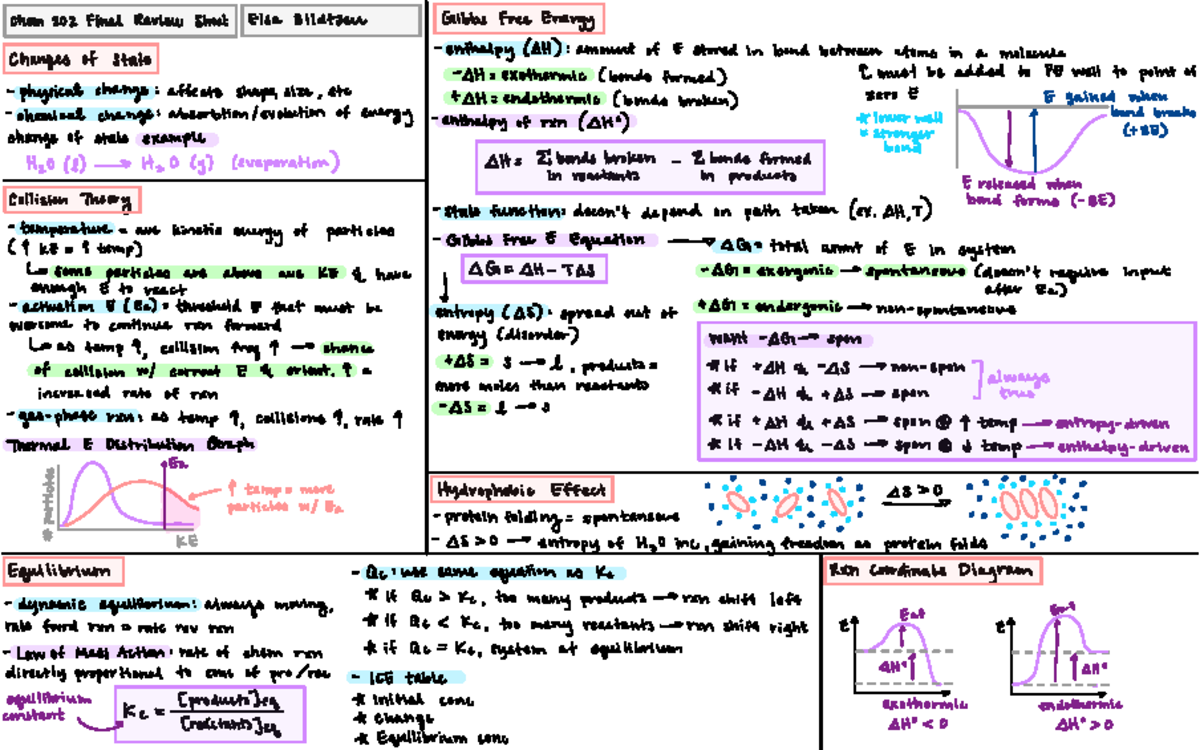 Chem 302 Final Review Sheet
Changes of State
- physical change: affects shape, size, etc
- chemical change: absorption/evolution of energy
change of state example
H₂O (l) → H₂O (g) (evaporation)
Collision Theory
- temperature = ave kinetic energy of particles
(↑ KE = ↑ temp)
↳ some particles are above ave KE & have
enough E to react
- activation E (Ea) = threshold E that must be
overcome to continue rxn forward
↳ as temp ↑, collision freq ↑ → chance
of collision w/ correct E & orient. ↑ =
increased rate of rxn
- gas-phase rxn: as temp ↑, collisions ↑, rate ↑
Thermal E Distribution Graph
# particles
Ea
KE
↑ temp = more
particles w/ Ea
Gibbs Free Energy
- enthalpy (ΔH): amount of E stored in bond between atoms in a molecule
-ΔH = exothermic (bonds formed)
+ΔH = endothermic (bonds broken)
must be added to PE well to point of
zero E
- enthalpy of rxn (ΔH°)
ΔH = Σ bonds broken in reactants - Σ bonds formed in products
* lower well
= stronger
bond
E gained when
bond breaks
(+BE)
E released when
bond forms (-BE)
- state function: doesn't depend on path taken (ex. ΔH, T)
- Gibbs Free E Equation → ΔG = total amnt of E in system
ΔG = ΔH - TΔS
-ΔG = exergonic → spontaneous (doesn't require input
after Ea)
+ΔG = endergonic → non-spontaneous
entropy (ΔS): spread out of
energy (disorder)
+ΔS = s → l, products =
more moles than reactants
-ΔS = l → s
want -ΔG → spon
* if +ΔH & -ΔS → non-spon
* if -ΔH & +ΔS → spon
always
true
* if +ΔH & +ΔS → spon @ ↑ temp → entropy-driven
* if -ΔH & -ΔS → spon @ ↓ temp → enthalpy-driven
Hydrophobic Effect
- protein folding = spontaneous
- ΔS > 0 → entropy of H₂O inc, gaining freedom as protein folds
ΔS > 0
Equilibrium
- dynamic equilibrium: always moving,
rate fwrd rxn = rate rev rxn
- Law of Mass Action: rate of chem rxn
directly proportional to conc of pro/rec
equilibrium
constant
Kc = [products]eq / [reactants]eq
- Qc: use same equation as Kc
* if Qc > Kc, too many products → rxn shift left
* if Qc < Kc, too many reactants → rxn shift right
* if Qc = Kc, system at equilibrium
- ICE table
* Initial conc
* Change
* Equilibrium conc
Rxn Coordinate Diagram
E
Eat
ΔH°
exothermic
ΔH° < 0
E
Eat
ΔH°
endothermic
ΔH° > 0